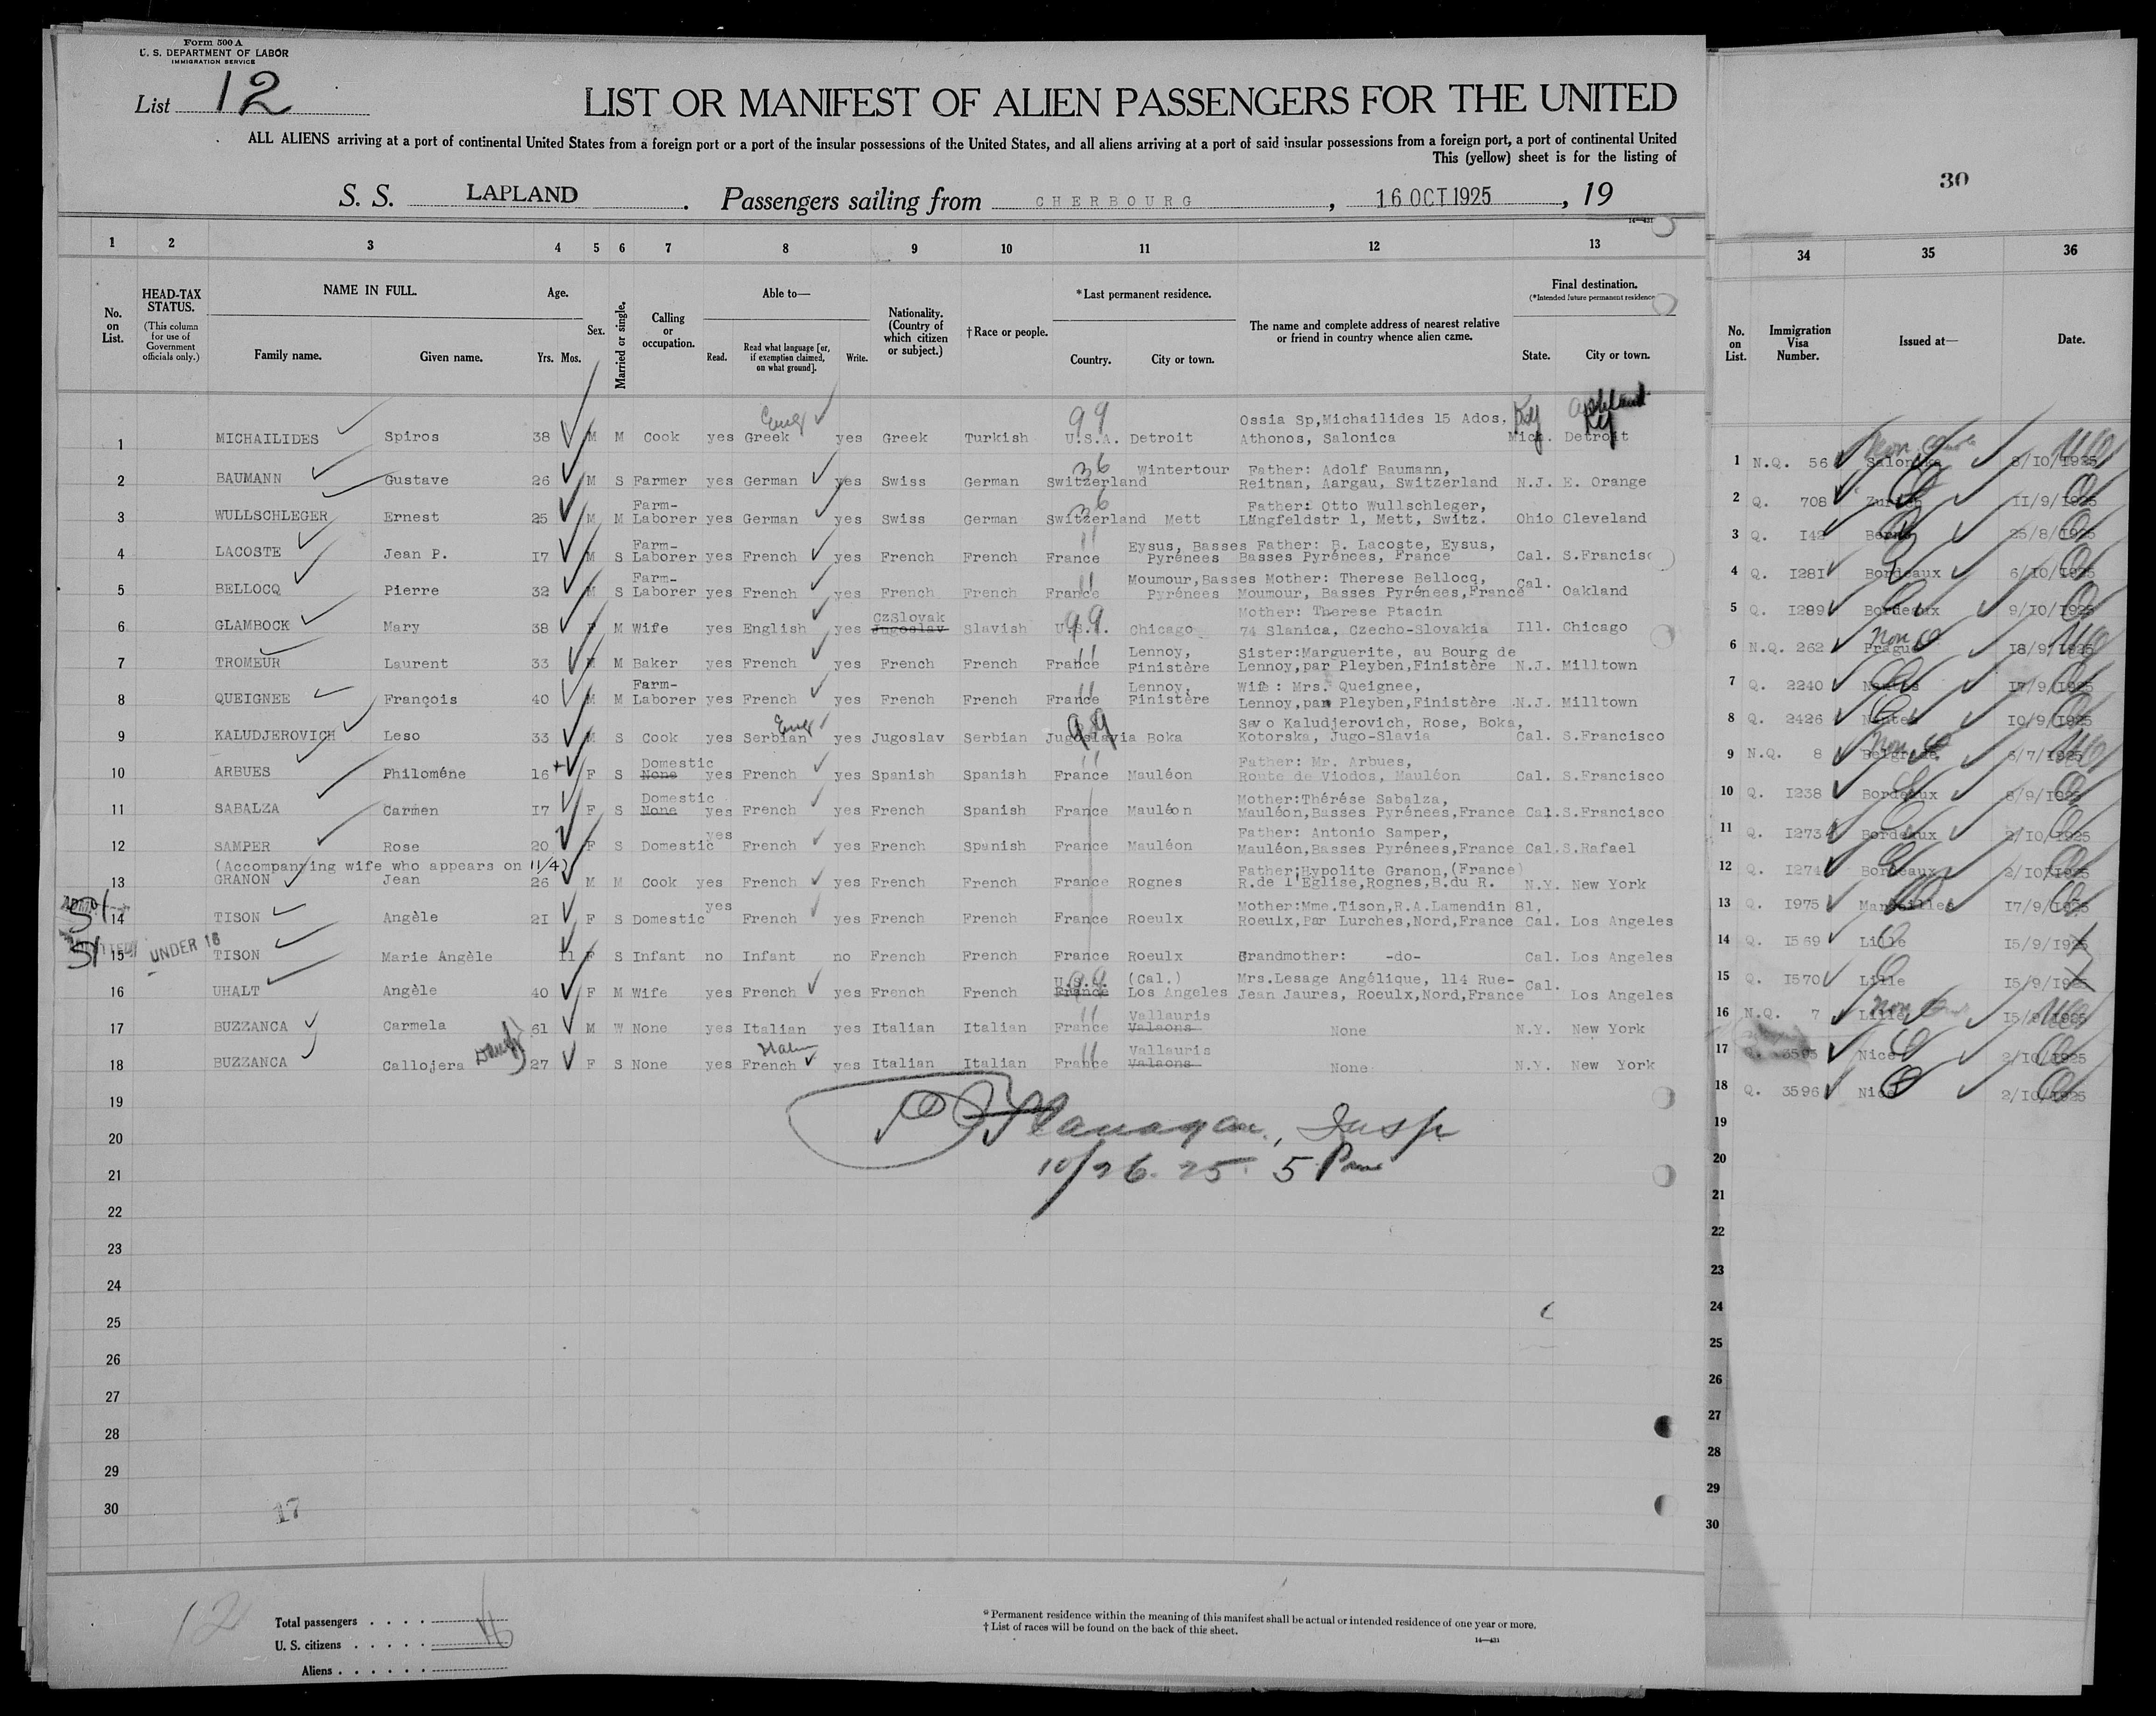 Form 500 A
U. S. DEPARTMENT OF LABOR
IMMIGRATION SERVICE
List 12
LIST OR MANIFEST OF ALIEN PASSENGERS FOR THE UNITED
ALL ALIENS arriving at a port of continental United States from a foreign port or a port of the insular possessions of the United States, and all aliens arriving at a port of said insular possessions from a foreign port, a port of continental United
This (yellow) sheet is for the listing of
S. S. LAPLAND . Passengers sailing from CHERBOURG , 16 OCT 1925 , 19
30
14—431
1 2 3 4 5 6 7 8 9 10 11 12 13 34 35 36
No. on List.
HEAD-TAX STATUS.
(This column for use of Government officials only.)
NAME IN FULL.
Family name. Given name.
Age.
Yrs. Mos.
Sex.
Married or single.
Calling or occupation.
Able to—
Read. Read what language [or, if exemption claimed, on what ground]. Write.
Nationality. (Country of which citizen or subject.)
†Race or people.
*Last permanent residence.
Country. City or town.
The name and complete address of nearest relative or friend in country whence alien came.
Final destination.
(*Intended future permanent residence
State. City or town.
No. on List.
Immigration Visa Number.
Issued at—
Date.
Eng 99 Ossia Sp,Michailides 15 Ados, Ky Ashland Ky
1 MICHAILIDES Spiros 38 M M Cook yes Greek yes Greek Turkish U.S.A. Detroit Athonos, Salonica Mich. Detroit
1 N.Q. 56 Salonika 8/10/1925
36 Wintertour Father: Adolf Baumann,
2 BAUMANN Gustave 26 M S Farmer yes German yes Swiss German Switzerland Reitnan, Aargau, Switzerland N.J. E. Orange
2 Q. 708 Zurich 11/9/1925
Farm- 36 Father: Otto Wullschleger,
3 WULLSCHLEGER Ernest 25 M M Laborer yes German yes Swiss German Switzerland Mett Längfeldstr 1, Mett, Switz. Ohio Cleveland
3 Q. 142 Berne 25/8/1925
Farm- 11 Eysus, Basses Father: B. Lacoste, Eysus,
4 LACOSTE Jean P. 17 M S Laborer yes French yes French French France Pyrénees Basses Pyrénees, France Cal. S.Francisc
4 Q. 1281 Bordeaux 6/10/1925
Farm- 11 Moumour,Basses Mother: Therese Bellocq,
5 BELLOCQ Pierre 32 M S Laborer yes French yes French French France Pyrénees Moumour, Basses Pyrénees,France Cal. Oakland
5 Q. 1289 Bordeaux 9/10/1925
CzSlovak Mother: Therese Ptacin
6 GLAMBOCK Mary 38 F M Wife yes English yes Jugoslav Slavish U.S. 99 Chicago 74 Slanica, Czecho-Slovakia Ill. Chicago
6 N.Q. 262 Prague 18/9/1925
11 Lennoy, Sister:Marguerite, au Bourg de
7 TROMEUR Laurent 33 M M Baker yes French yes French French France Finistère Lennoy,par Pleyben,Finistère N.J. Milltown
7 Q. 2240 Nantes 17/9/1925
Farm- 11 Lennoy, Wife: Mrs. Queignee,
8 QUEIGNEE François 40 M M Laborer yes French yes French French France Finistère Lennoy,par Pleyben,Finistère N.J. Milltown
8 Q. 2426 Nantes 10/9/1925
Eng 99 Savo Kaludjerovich, Rose, Boka,
9 KALUDJEROVICH Leso 33 M S Cook yes Serbian yes Jugoslav Serbian Jugoslavia Boka Kotorska, Jugo-Slavia Cal. S.Francisco
9 N.Q. 8 Belgrade 6/7/1925
Domestic 11 Father: Mr. Arbues,
10 ARBUES Philoméne 16 F S None yes French yes Spanish Spanish France Mauléon Route de Viodos, Mauléon Cal. S.Francisco
10 Q. 1238 Bordeaux 8/9/1925
Domestic Mother:Thérése Sabalza,
11 SABALZA Carmen 17 F S None yes French yes French Spanish France Mauléon Mauléon,Basses Pyrénees,France Cal.S.Francisco
11 Q. 1273 Bordeaux 2/10/1925
yes Father: Antonio Samper,
12 SAMPER Rose 20 F S Domestic French yes French Spanish France Mauléon Mauléon,Basses Pyrénees,France Cal.S.Rafael
12 Q. 1274 Bordeaux 2/10/1925
(Accompanying wife who appears on 11/4) Father:Hypolite Granon,(France)
13 GRANON Jean 26 M M Cook yes French yes French French France Rognes R.de l'Eglise,Rognes,B.du R. N.Y. New York
13 Q. 1975 Marseilles 17/9/1925
yes Mother:Mme.Tison,R.A.Lamendin 81,
14 TISON Angèle 21 F S Domestic French yes French French France Roeulx Roeulx,Par Lurches,Nord,France Cal. Los Angeles
14 Q. 1569 Lille 15/9/1925
15 UNDER 16 TISON Marie Angèle 11 F S Infant no Infant no French French France Roeulx Grandmother: -do- Cal. Los Angeles
15 Q. 1570 Lille 15/9/1925
U.S. 99 (Cal.) Mrs.Lesage Angélique, 114 Rue-
16 UHALT Angèle 40 F M Wife yes French yes French French France Los Angeles Jean Jaures, Roeulx,Nord,France Cal. Los Angeles
16 N.Q. 7 Lille 15/9/1925
11 Vallauris
17 BUZZANCA Carmela 61 M W None yes Italian yes Italian Italian France Valaons None N.Y. New York
17 Q. 3595 Nice 2/10/1925
Daugh Italn 11 Vallauris
18 BUZZANCA Callojera 27 F S None yes French yes Italian Italian France Valaons None N.Y. New York
18 Q. 3596 Nice 2/10/1925
19
20 Flanagan, Insp
21 10/26.25. 5 Pm
22
23
24
25
26
27
28
29
30
17
12
Total passengers . . . .
U. S. citizens . . . . .
Aliens . . . . . .
* Permanent residence within the meaning of this manifest shall be actual or intended residence of one year or more.
† List of races will be found on the back of this sheet.
14—431